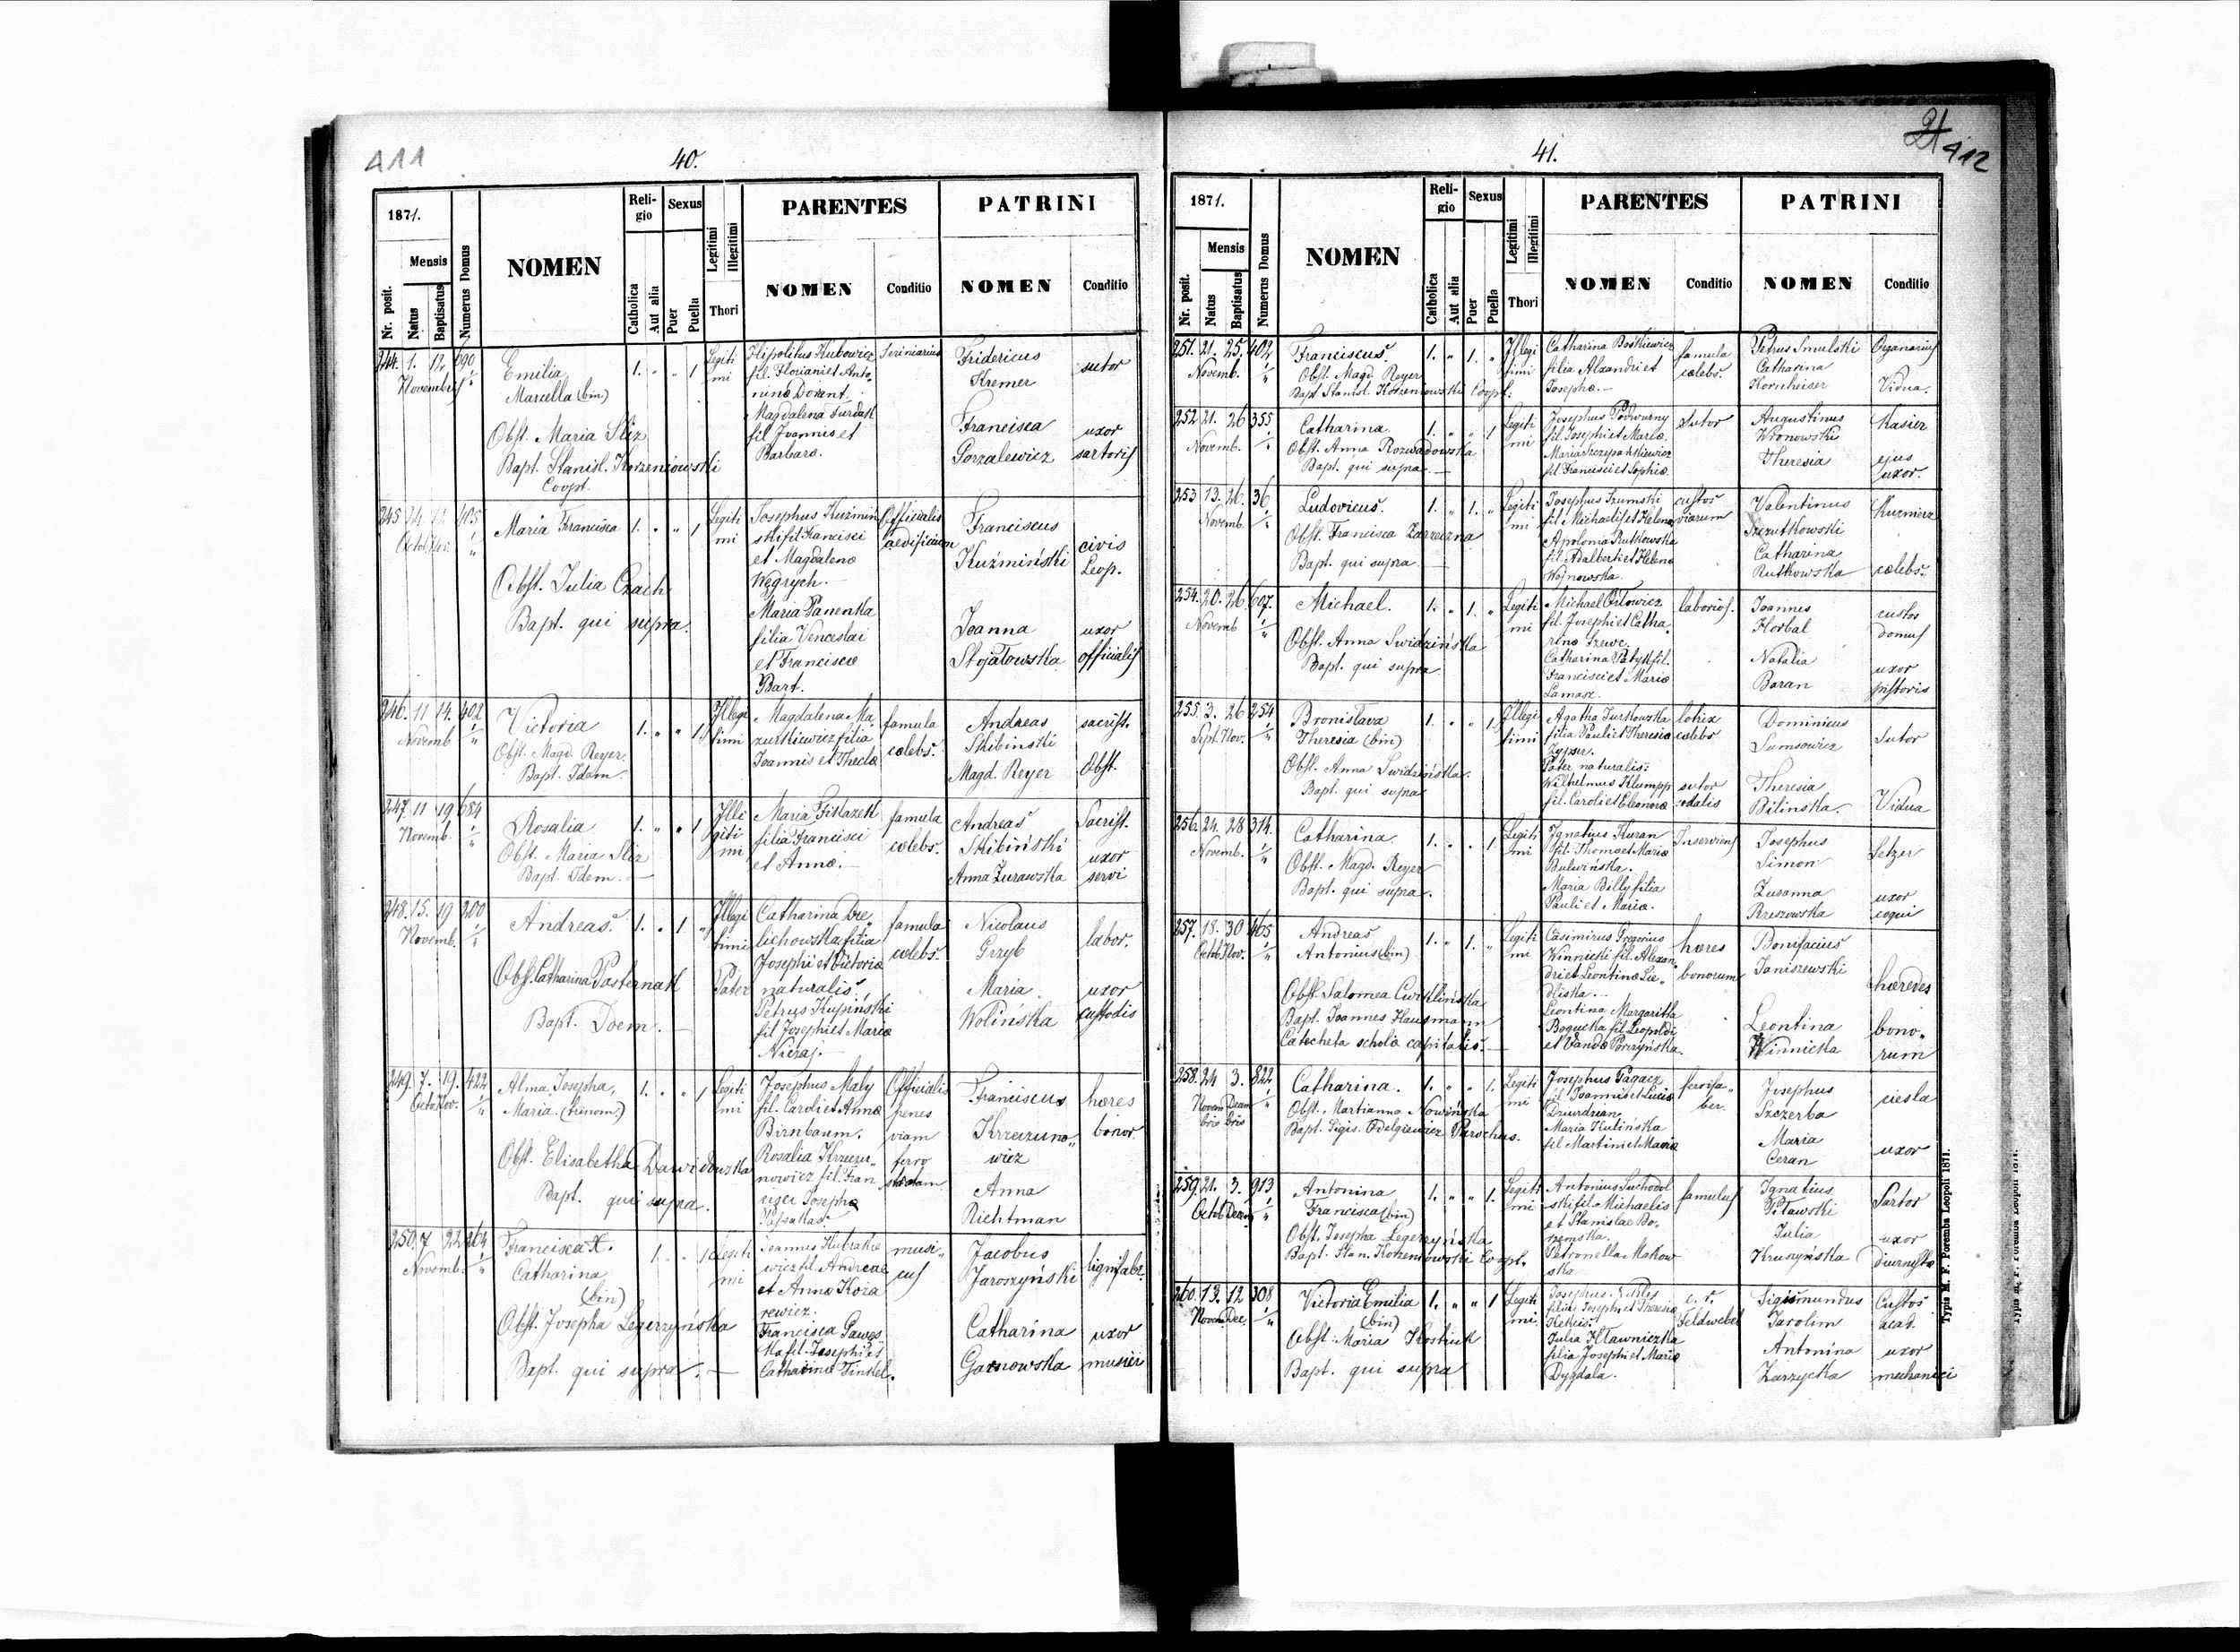 411
40.
1871.
Nr. posit.
Mensis
Natus
Baptisatus
Numerus Domus
NOMEN
Religio
Catholica
Aut alia
Sexus
Puer
Puella
Legitimi
Illegitimi
Thori
PARENTES
NOMEN
Conditio
PATRINI
NOMEN
Conditio
244. 1. 12 690
Novembris
Emilia
Marcella (bin)
Obst. Maria Sliz
Bapt. Stanisl. Korzeniowski
Coopt.
1. " " 1
Legiti
mi
Hipolitus Kubowicz
fil. Floriani et Anto
ninæ Dorent.
Magdalena Furdak
fil Joannis et
Barbaræ.
Scriniarius
Fridericus
Kremer
sutor
Francisca
Gorzalewicz
uxor
sartoris
245 24 12 405
Octob Nov.
Maria Francisca
Obst. Julia Czach
Bapt. qui supra.
1. " " 1
Legiti
mi
Josephus Kuźmiń
ski fil Francisci
et Magdalenæ
Węgrych.
Maria Panenka
filia Venceslai
et Franciscæ
Bart.
Officialis
aedificium
Franciscus
Kuźmiński
civis
Leop.
Joanna
Stojałowska
uxor
officialis
246. 11 14. 402
Novemb
Victoria
Obst. Magd. Reyer.
Bapt. Idem.
1. " " 1
Illegi
timi
Magdalena Ma
zurkiewicz filia
Joannis et Theclæ
famula
cælebs.
Andreas
Skibinski
Magd. Reyer
sacrist.
Obst.
247. 11 19 684
Novemb.
Rosalia
Obst. Maria Sliz
Bapt. Idem.
1. " " 1
Illi
giti
mi
Maria Fiklazek
filia Francisci
et Annæ.
famula
cælebs.
Andreas
Skibiński
Anna Żurawska
Sacrist.
uxor
servi
248. 15. 19 200
Novemb.
Andreas.
Obst. Catharina Pasternak
Bapt. Idem.
1. " 1 "
Illegi
timi
Pater
Catharina Dre
lichowska filia
Josephi et Victoriæ
naturalis:
Petrus Kupiński
fil Josephi et Mariæ
Niczaj.
famula
cælebs.
Nicolaus
Grzyb
Maria
Wolińska
labor.
uxor
custodis
249. 7. 19. 422
Octo Nov.
Alma, Josepha,
Maria. (trinom.)
Obst. Elisabetha Dawidowska
Bapt. qui supra.
1. " " 1
Legiti
mi
Josephus Maly
fil. Caroli et Annæ
Birnbaum.
Rosalia Krzeczu
nowicz fil. Fran
cisci Josephæ
Passakas.
Officialis
penes
viam
ferro
stratam
Franciscus
Krzeczuno
wicz
Anna
Richtman
hæres
bonor.
250. 7 22 264
Novemb.
Francisca X.
Catharina
(bin)
Obst. Josepha Legerzyńska
Bapt. qui supra.
1. " " 1
Legiti
mi
Joannes Kubrakie
wicz fil. Andreae
et Annæ Koza
rewicz.
Francisca Gawęs
ka fil. Josephi et
Catharinæ Finkel.
musi
cus
Jacobus
Jaroszyński
lignifabr.
Catharina
Garnowska
uxor
musici
412
41.
1871.
Nr. posit.
Mensis
Natus
Baptisatus
Numerus Domus
NOMEN
Religio
Catholica
Aut alia
Sexus
Puer
Puella
Legitimi
Illegitimi
Thori
PARENTES
NOMEN
Conditio
PATRINI
NOMEN
Conditio
251. 21. 25. 402
Novemb.
Franciscus.
Obst. Magd. Reyer
Bapt. Stanisl. Korzeniowski Coopt.
1. " 1. "
Illegi
timi
Catharina Boskiewicz
filia Alexandri et
Josephæ.
famula
cælebs.
Petrus Smulski
Catharina
Kornheiser
Organarius
Vidua.
252 21. 26 355
Novemb.
Catharina
Obst. Anna Rozwadowska
Bapt. qui supra.
1. " " 1
Legiti
mi
Josephus Podwurny
fil. Josephi et Mariæ
Maria Szczepankiewicz
fil. Francisci et Sophiæ.
Sutor
Augustinus
Wronowski
Theresia
Kasier
ejus
uxor.
253 13. 26. 36
Novemb.
Ludovicus.
Obst. Francisca Zarzeczna
Bapt. qui supra
1. " 1. "
Legiti
mi
Josephus Szumski
fil Michaelis et Helenæ
Apolonia Rutkowska
fil. Adalberti et Helenæ
Wojnowska.
custos
viarum
Valentinus
Szczutkowski
Catharina
Rutkowska
Kuznierz
cælebs.
254. 20. 26 607.
Novemb
Michael.
Obst. Anna Swidzińska
Bapt. qui supra
1. " 1. "
Legiti
mi
Michael Orłowicz
fil. Josephi et Catha
rinæ Szewc.
Catharina Patyk fil.
Francisci et Mariæ
Lamasz.
laborios.
Joannes
Horbal
Natalia
Baran
custos
domus
uxor
pistoris
255. 3. 26 254
Sept. Nov.
Bronislava
Theresia (bin)
Obst. Anna Swidzińska.
Bapt. qui supra
1. " " 1
Illegi
timi
Agatha Turkowska
filia Pauli et Theresiæ
Zyper.
Pater naturalis:
Wilhelmus Klumpp
fil. Caroli et Eleonoræ
lotrix
cælebs
sutor
sodalis
Dominicus
Sumsowicz
Theresia
Bilinska.
Sutor
Vidua
256. 24. 28 314.
Novemb.
Catharina
Obst. Magd. Reyer
Bapt. qui supra.
1. " " 1.
Legiti
mi
Ignatius Kuran
fil. Thomæ et Mariæ
Bulwińska.
Maria Billy filia
Pauli et Mariæ.
Inserviens
Josephus
Simon
Zusanna
Rzeszowska
Setzer
uxor
coqui
257. 18. 30 465
Octob Nov.
Andreas
Antonius (bin)
Obst. Salomea Cwiklińska
Bapt. Joannes Hausmann
Catecheta scholæ capitalis.
1. " 1. "
Legiti
mi
Casimirus Gregorius
Winnicki fil. Alexan
dri et Leontinæ Sie
dliska.
Leontina Margaritha
Bogucka fil. Leopoldi
et Vandæ Porczyńska.
hæres
bonorum
Bonifacius
Janiszewski
Leontina
Winnicka
hæredes
bono
rum
258. 24 3. 822
Novem Decem
bris bris
Catharina.
Obst. Martianna Nowińska
Bapt. Sigis. Odelgiewicz Parochus.
1. " " 1.
Legiti
mi
Josephus Pagacz
fil. Joannis et Luciæ
Dziurdzian
Maria Kulińska
fil Martini et Mariæ
ferrifa
ber.
Josephus
Szczerba
Maria
Ceran
ciesla
uxor
259. 21. 3. 913
Octob Decem
Antonina
Francisca (bin)
Obst. Josepha Legerzyńska
Bapt. Stan. Korzeniowski Coopt.
1. " " 1.
Legiti
mi
Antonius Suchodol
ski fil. Michaelis
et Stanislae Bo
rzemska.
Petronella Makow
ska
famulus
Ignatius
Pitawski
Julia
Kruszyńska
Sartor
uxor
diurnistæ
260. 13. 12 308
Novem Dec
Victoria Emilia
(bin)
Obst. Maria Kostiuk
Bapt. qui supra
1. " " 1
Legiti
mi.
Josephus
filius Josephi et Theresiæ
Julia Hławniczka
filia Josephi et Mariæ
Dygdala.
c. r.
Feldwebel
Sigismundus
Jarolim
Antonina
Zarzycka
Custos
acad.
uxor
mechanici
Typis M. F. Poremba Leopoli 1871.